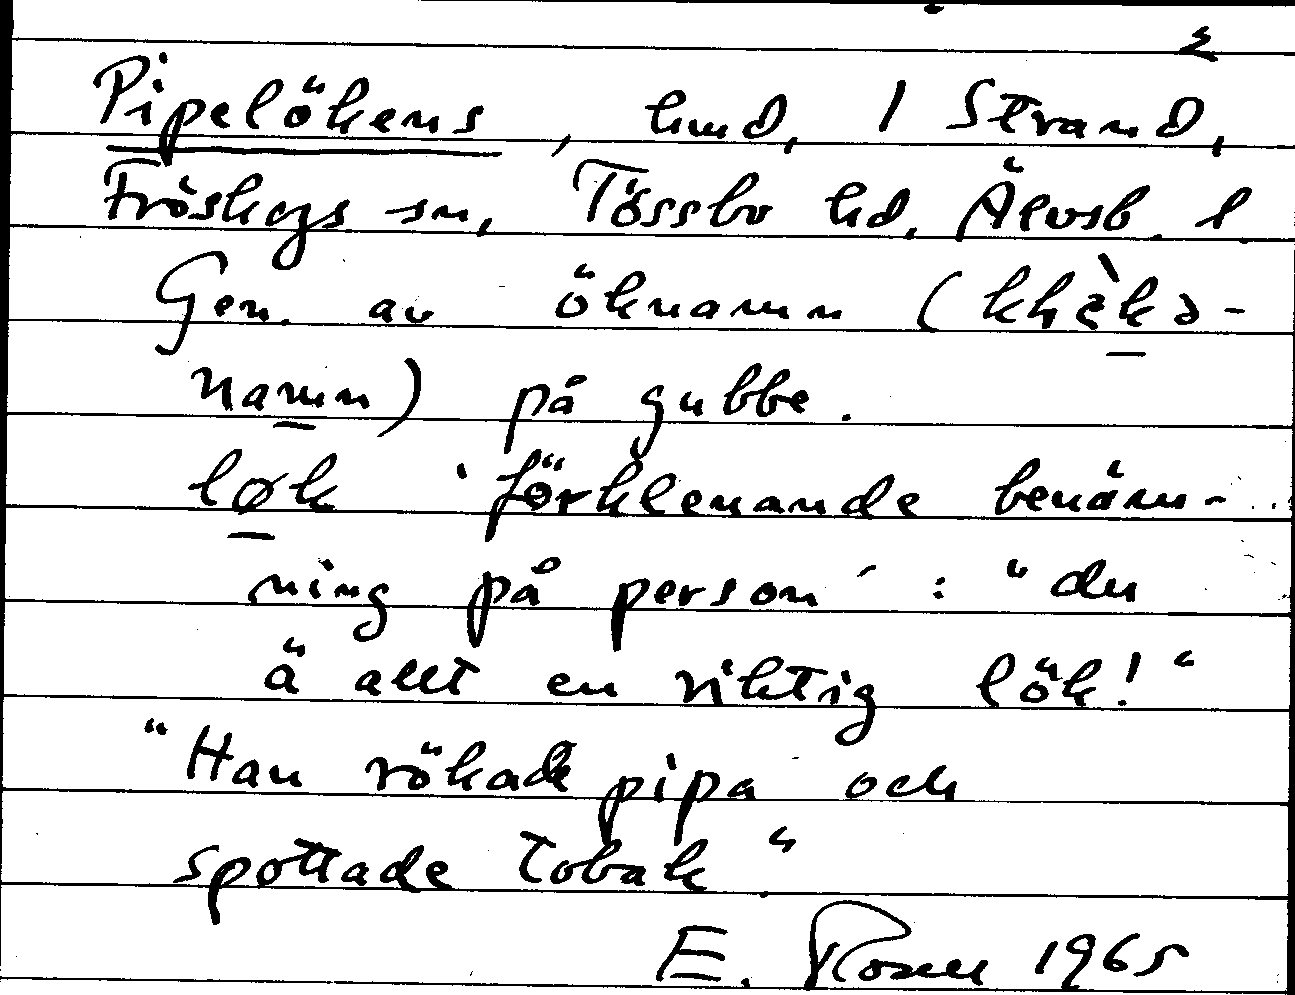 2
Pipelökens, hmd, 1 Strand,
Fröskogs sn, Tössbo hd. Älvsb. l.
Gen. av öknamn (
namn) på gubbe.
løk 'förklenande benäm-
ning på person': "du
ä allt en riktig lök!"
"Han rökade pipa och
spottade tobak."
E. Rosell 1965